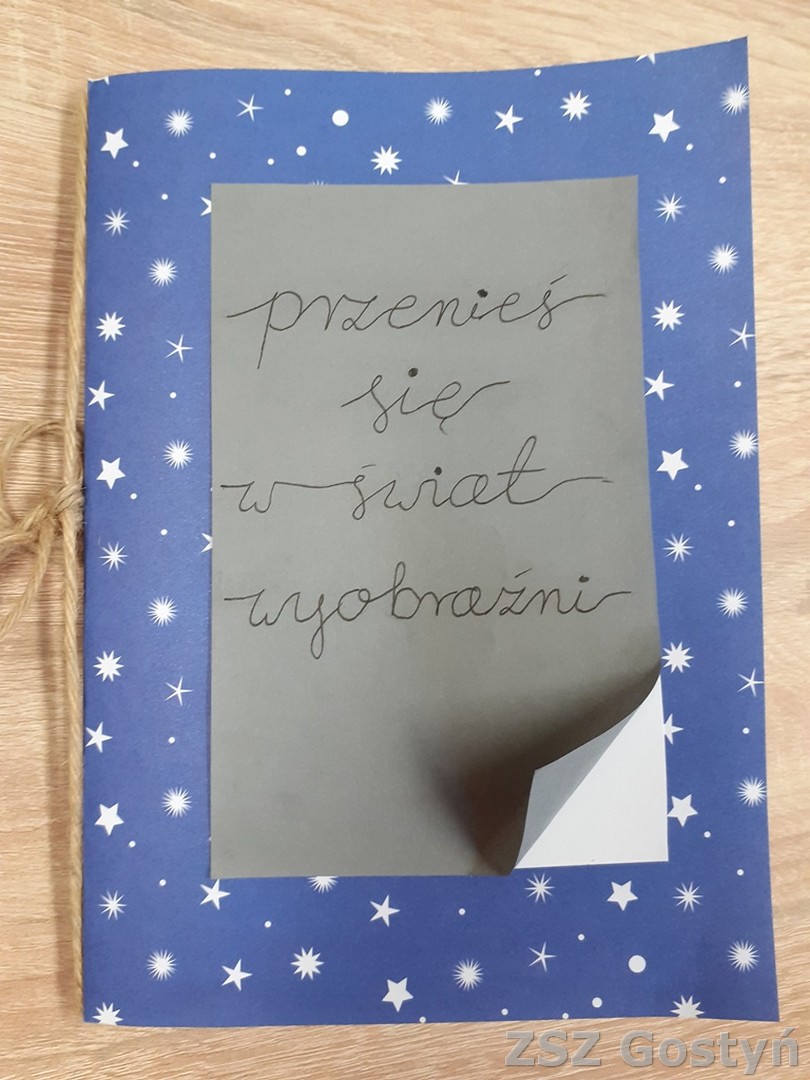 przenieś
się
w świat
wyobraźni
ZSZ Gostyń